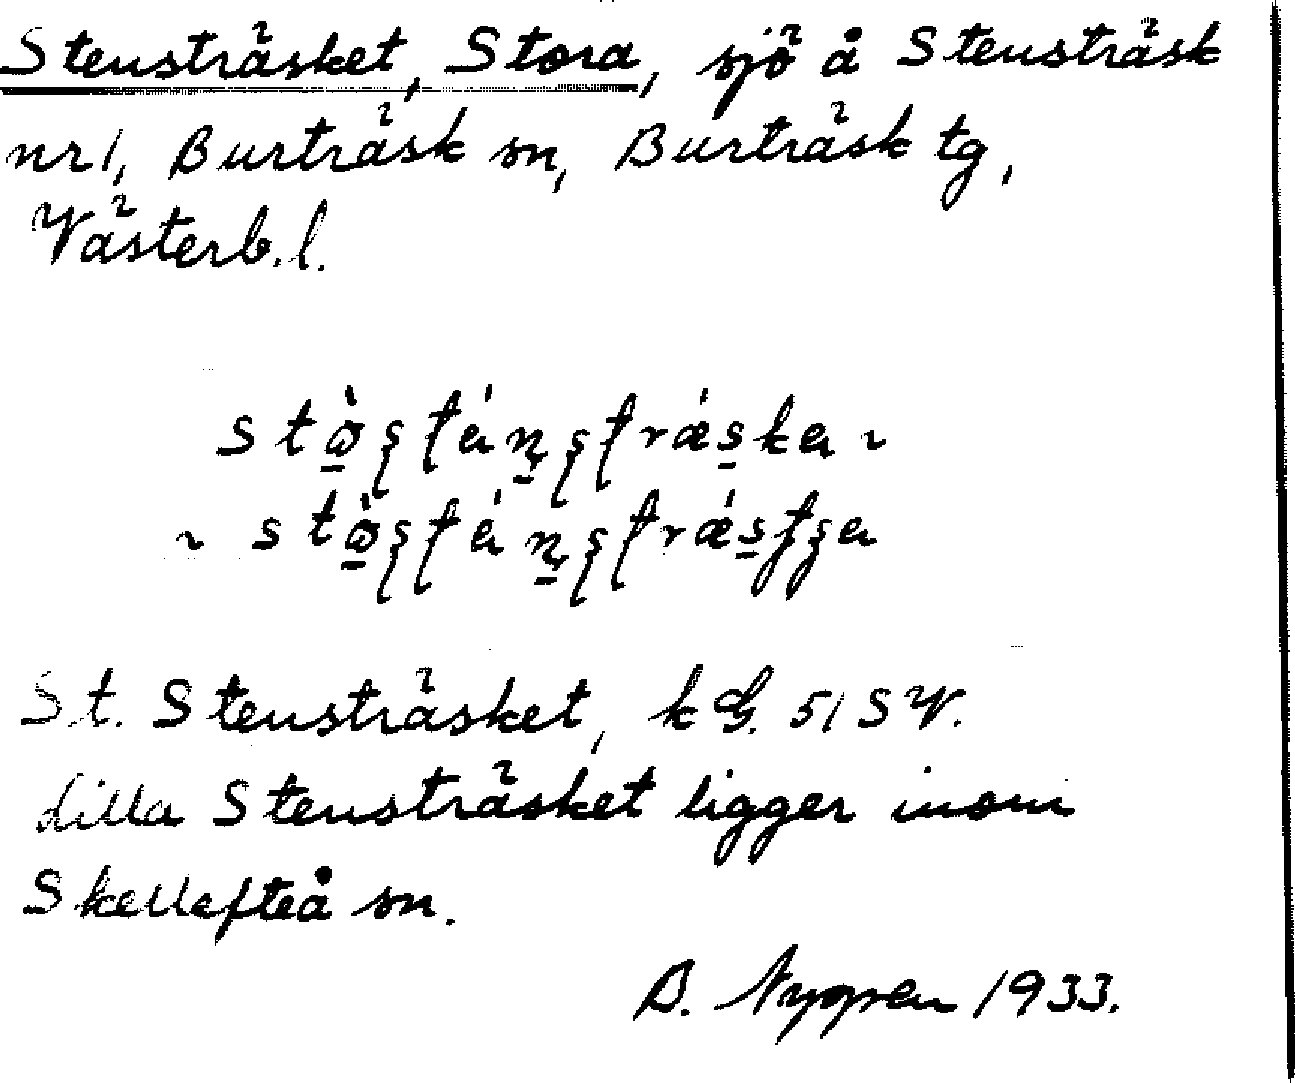 Stensträsket, Stora, sjö å Stensträsk
nr 1, Burträsk sn, Burträsk tg,
Västerb. l.
St. Stensträsket, kG. 51 SV.
Lilla Stensträsket ligger inom
Skellefteå sn.
B. Nygren 1933.